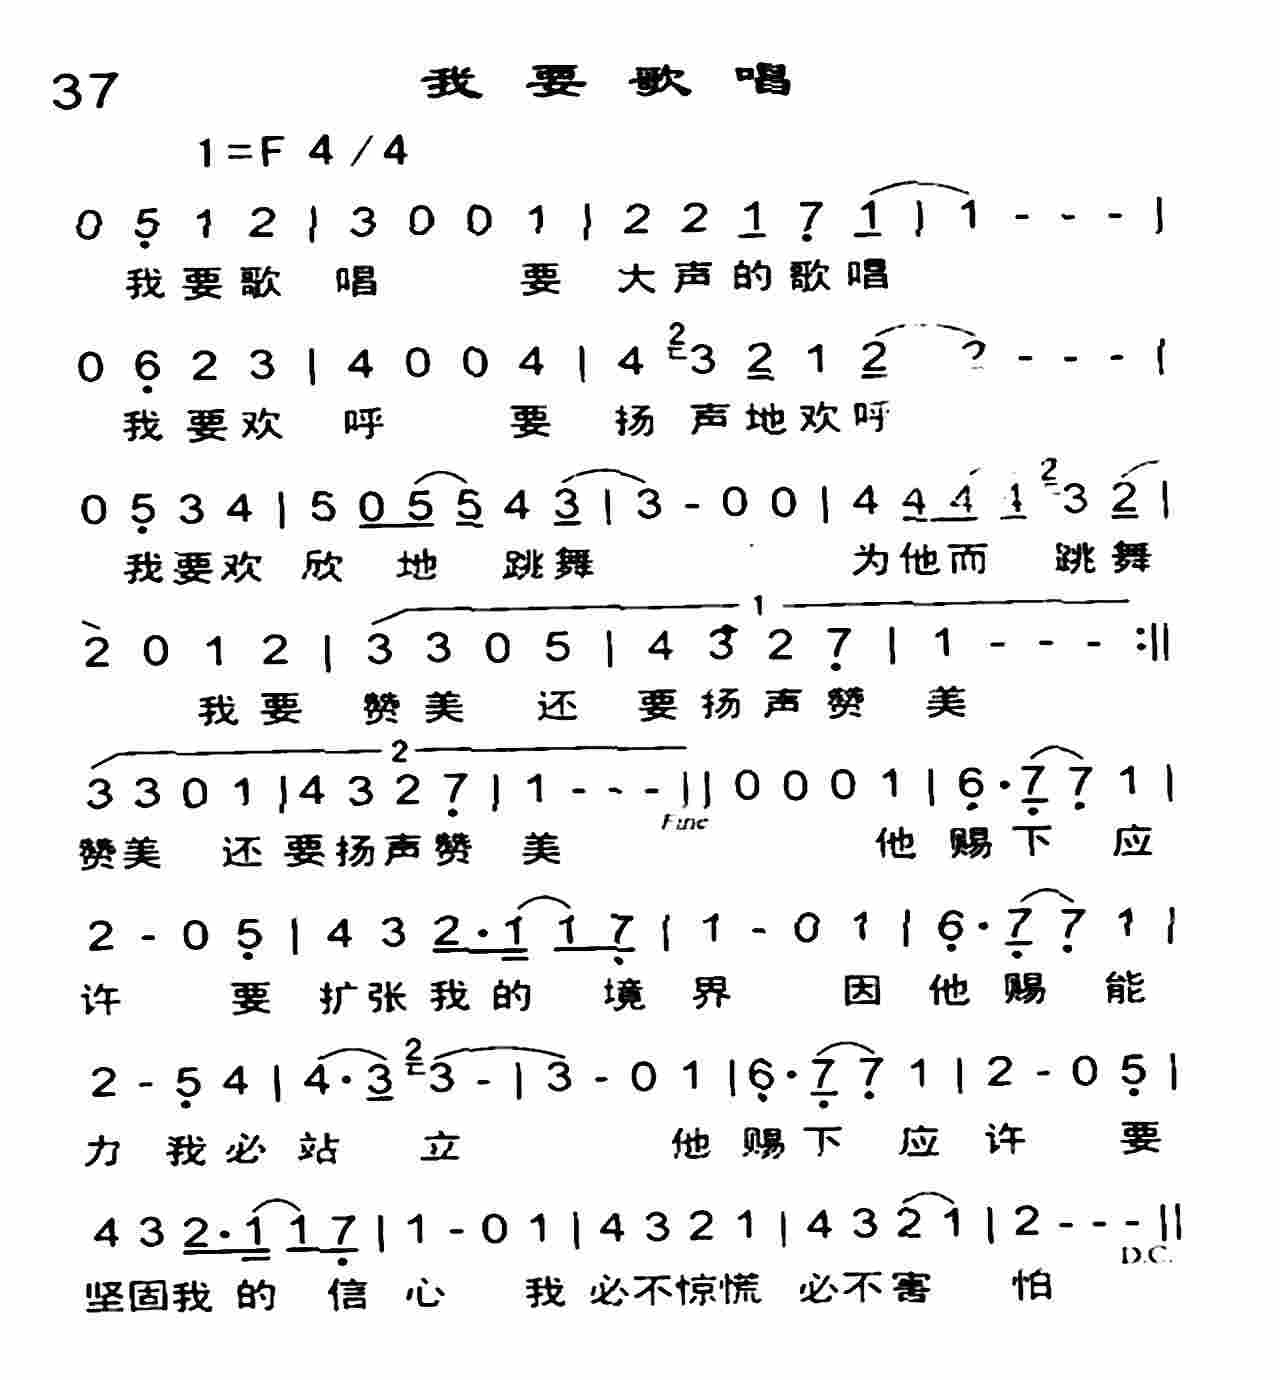 37 我要歌唱
1=F 4/4
0 5 1 2 | 3 0 0 1 | 2 2 1 7 1 | 1 - - - |
我要歌唱 要大声的歌唱
0 6 2 3 | 4 0 0 4 | 4 2 3 2 1 2 2 - - - |
我要欢呼 要扬声地欢呼
0 5 3 4 | 5 0 5 5 4 3 | 3 - 0 0 | 4 4 4 1 2 3 2 |
我要欢欣地跳舞 为他而跳舞
1
2 0 1 2 | 3 3 0 5 | 4 3 2 7 | 1 - - - :||
我要赞美还要扬声赞美
2
3 3 0 1 | 4 3 2 7 | 1 - - - || 0 0 0 1 | 6 · 7 7 1 |
Fine
赞美还要扬声赞美 他赐下应
2 - 0 5 | 4 3 2 · 1 1 7 | 1 - 0 1 | 6 · 7 7 1 |
许要扩张我的境界因他赐能
2 - 5 4 | 4 · 3 2 3 - | 3 - 0 1 | 6 · 7 7 1 | 2 - 0 5 |
力我必站立 他赐下应许要
4 3 2 · 1 1 7 | 1 - 0 1 | 4 3 2 1 | 4 3 2 1 | 2 - - - ||
D.C.
坚固我的信心 我必不惊慌必不害怕